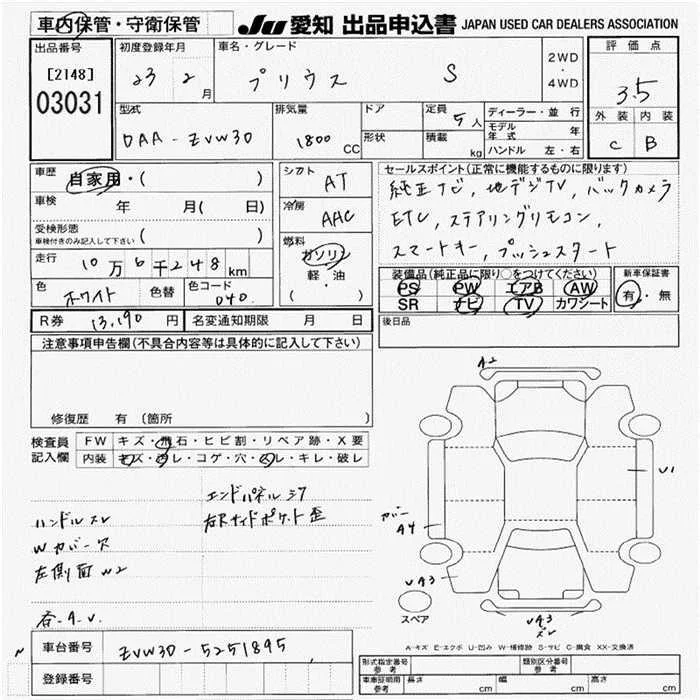 車内保管・守衛保管
JU 愛知 出品申込書 JAPAN USED CAR DEALERS ASSOCIATION
出品番号
[2148]
03031
初度登録年月
23 2月
車名・グレード
プリウス S
2WD
・
4WD
評価点
3.5
外装 内装
C B
型式
DAA-ZVW30
排気量
1800 CC
ドア
形状
定員
5人
積載
kg
ディーラー・並行
モデル年式 年
ハンドル 左・右
車歴
自家用・( )
車検
年 月( 日)
受検形態
車検付きのみ記入して下さい ( )
走行
10万6千248km
色
ホワイト
色替
色コード
040
シフト
AT
冷房
AAC
燃料
ガソリン
軽・油
( ・ )
セールスポイント(正常に機能するものに限ります)
純正ナビ, 地デジTV, バックカメラ
ETC, ステアリングリモコン,
スマートキー, プッシュスタート
装備品(純正品に限り○をつけてください)
PS PW エアB AW
SR ナビ TV カワシート
新車保証書
有・無
R券 13,190円
名変通知期限 月 日
後日品
注意事項申告欄(不具合内容等は具体的に記入して下さい)
修復歴 有 〔箇所 〕
検査員記入欄
FW キズ・飛石・ヒビ割・リペア跡・X要
内装 キズ・汚レ・コゲ・穴・スレ・キレ・破レ
エンドパネルヨク
ハンドルスレ
右Rサイドポケット歪
Wカバー欠
左側面W2
各-A.U.
A2
U1
カバー
A4
UA3
UA3
スレ
スペア
A-キズ E-エクボ U-凹み W-補修跡 S-サビ C-腐食 XX-交換済
車台番号
ZVW30-5251895
登録番号
形式指定番号
参考
類別区分番号
参考
車庫証明用
参考
長さ cm 幅 cm 高さ cm